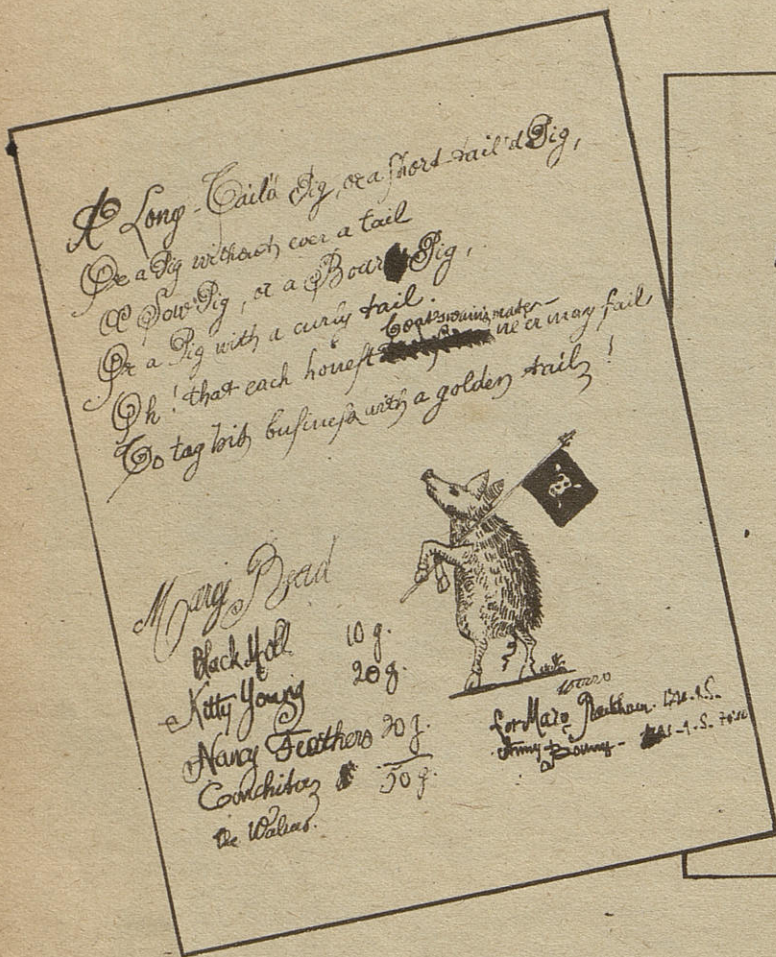 A Long-Tail'd Pig, or a short-tail'd Pig,
Or a Pig without ever a tail
A Sow Pig, or a Boar Pig,
Or a Pig with a curly tail.
Oh! that each honest boatswain's mate ne'er may fail,
To tag his business with a golden tail!
Mary Read
Black Moll 10 g.
Kitty Young 20 g.
Nancy Feathers 20 g.
Conchita 50 g.
the Walrus.
for Mary
Anny Bonny -